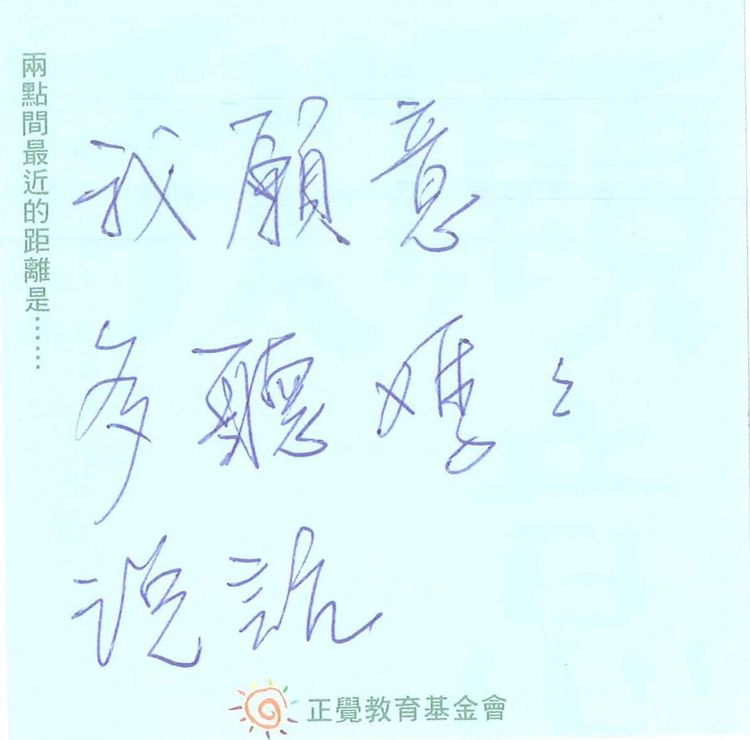 兩點間最近的距離是……
我願意
多聽媽々
説話
正覺教育基金會